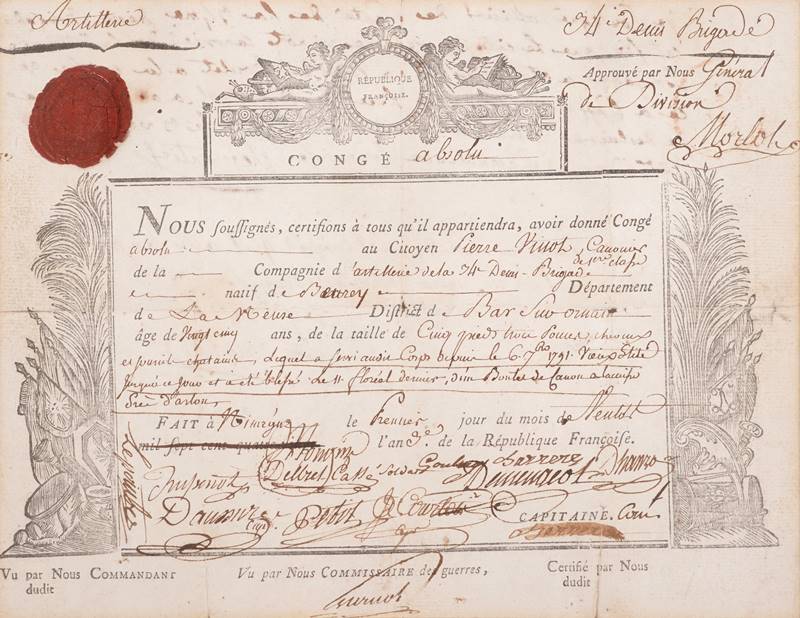 Artillerie
34e Demi Brigade
RÉPUBLIQUE
FRANÇOISE.
Approuvé par Nous Général
de Division
Morlot
CONGÉ absolu
NOUS soussignés, certifions à tous qu'il appartiendra, avoir donné Congé
absolu au Citoyen Pierre Vinot, Canonier
de 1ere classe
de la Compagnie d'artillerie de la 34e Demi-Brigade
natif de Beurey Département
de La Meuse District de Bar Sur ornain
âge de Vingt cinq ans, de la taille de Cinq pieds trois Pouces, cheveux
et sourcils chatains, Lequel a servi audit Corps depuis le 6 7bre 1791. Vieux Stile
jusqu'à ce jour et a été blessé Le 11 floréal dernier, d'un Boulet de Canon a la cuisse
Près d'arlon,
FAIT à Nimègue le Premier jour du mois de Ventôse
mil sept cent quatre l'an 3e. de la République Françoise.
Petit
CAPITAINE.
Vu par Nous COMMANDANT
dudit
Vu par Nous COMMISSAIRE des guerres,
Certifié par Nous
dudit